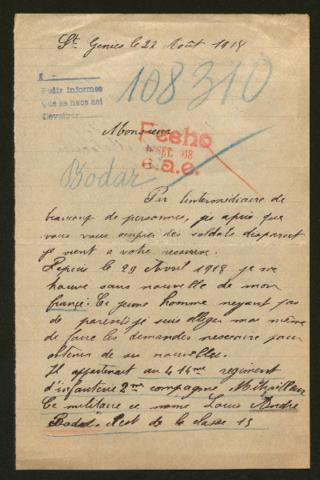 St Genies le 22 Août 1918
108310
Pedir informes
que se hace así
Devolver
Monsieur
Fecho
SET. 918
e.a.e.
Bodar
Par l'intermédiaire de
beaucoup de personnes, jai apris que
vous vous ocupiez des soldats disparut
je vient a votre recource.
Depuis le 29 Avril 1918 je me
trouve sans nouvelle de mon
françé. Ce jeune homme neyant pas
de parent je suis obliger moi même
de faire les demandes necessaire pour
obtenir de ses nouvelles.
Il appartenait au 414me regiment
d'infanterie 2me compagnie
Ce militaire ce nome Louis Andre
Bodar. Rest de la classe 15